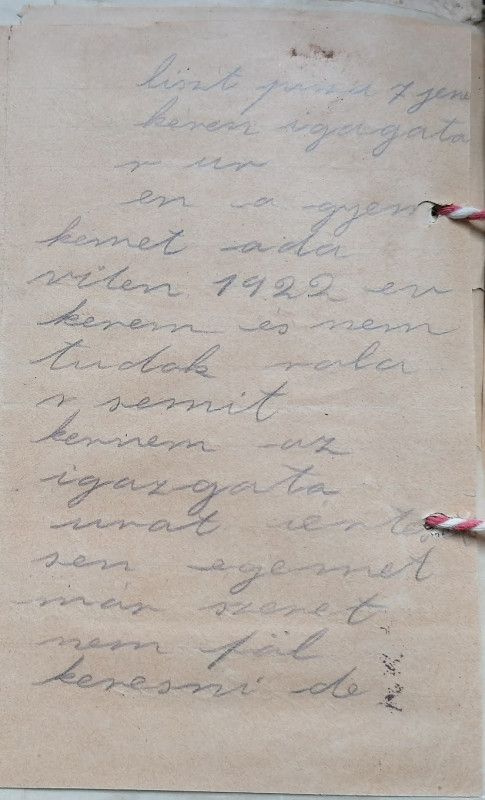 liszt puszu 7 jene
keren igazgata
r ur
en a gyer
kemet ada
viten 1922 ev
kerem és nem
tudok rola
r semit
kernem az
igazgata
urat ierte
sen egemet
már szeret
nem föl
keresni de